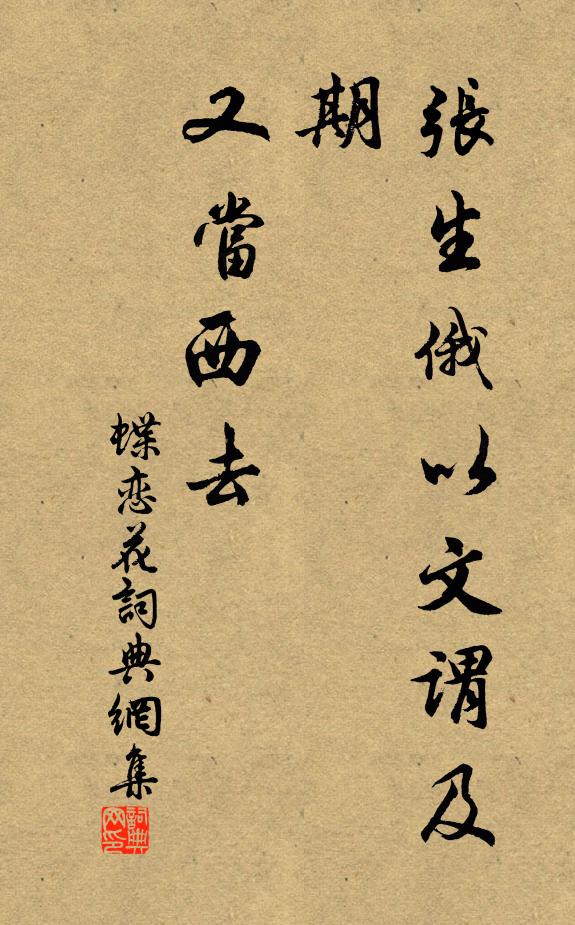 張生俄以文謂及
期
又當西去
蝶恋花詞典網集
詞典
网印